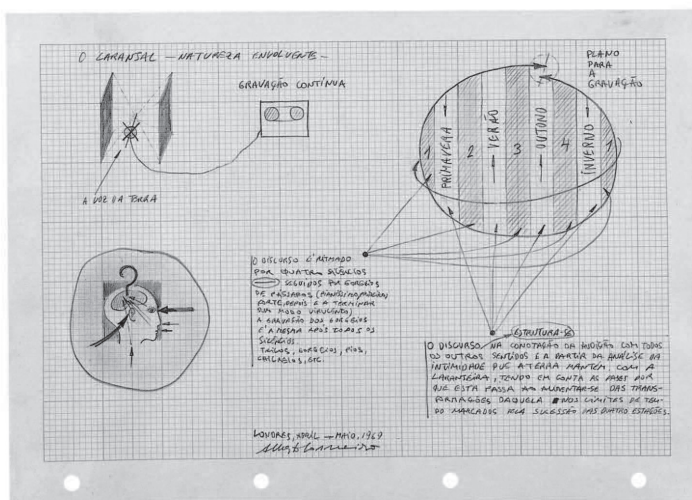 O LARANJAL — NATUREZA ENVOLVENTE —
GRAVAÇÃO CONTÍNUA
A VOZ DA TERRA
PLANO
PARA
A
GRAVAÇÃO
1 PRIMAVERA 2 VERÃO 3 OUTONO 4 INVERNO 1
O DISCURSO É RITMADO
POR QUATRO SILÊNCIOS
SEGUIDOS POR GORGEIOS
DE PÁSSAROS
FORTE, DEPOIS E A TERMINAR
DUM MODO VIRULENTO)
A GRAVAÇÃO DOS GORGEIOS
É A MESMA APÓS TODOS OS
SILÊNCIOS.
TRILOS, GORGEIOS, PIOS,
CHILREIOS, ETC.
ESTRUTURA-SE
O DISCURSO, NA CONOTAÇÃO DA AUDIÇÃO COM TODOS
OS OUTROS SENTIDOS E A PARTIR DA ANÁLISE DA
INTIMIDADE QUE A TERRA MANTEM COM A
LARANJEIRA, TENDO EM CONTA AS FASES POR
QUE ESTA PASSA AO ALIMENTAR-SE DAS TRANS-
FORMAÇÕES DAQUELA NOS LIMITES DE TEM-
PO MARCADOS PELA SUCESSÃO DAS QUATRO ESTAÇÕES.
LONDRES, ABRIL — MAIO, 1969
Alberto Carneiro